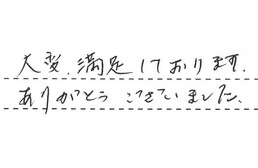 大変、満足しております。
ありがとうございました。